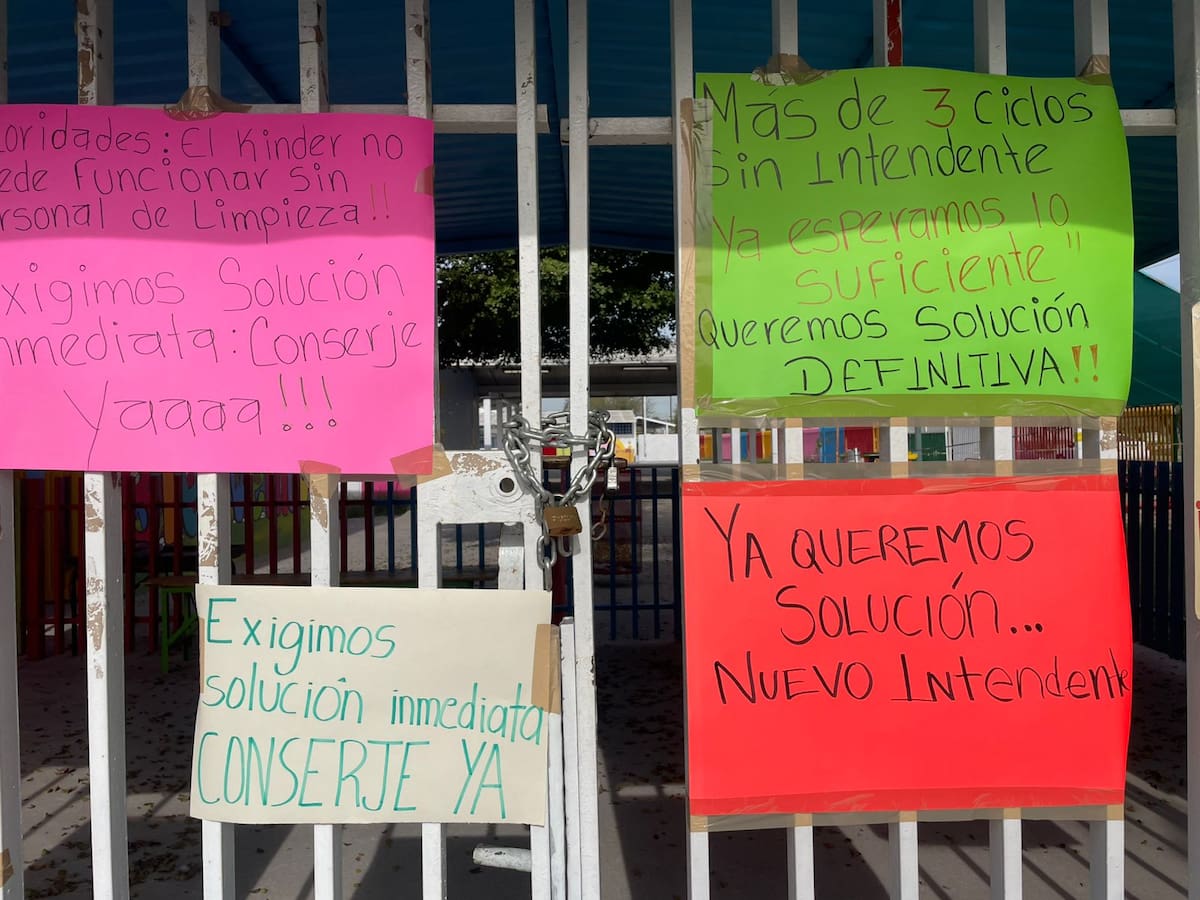 oridades: El Kinder no
ede Funcionar sin
rsonal de Limpieza!!
xigimos Solución
nmediata: Conserje
Yaaaa!!!
Exigimos
solución inmediata
CONSERJE YA
Mas de 3 Ciclos
Sin Intendente
Ya esperamos lo
SUFICIENTE"
Queremos Solución
DEFINITIVA!!
YA QUEREMOS
SOLUCIÓN...
NUEVO INtendente